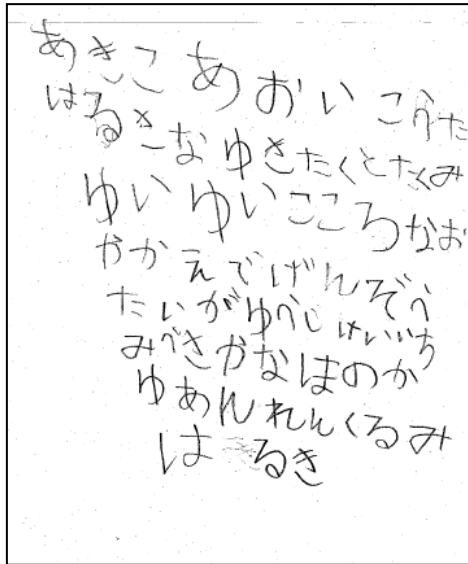 あきこ あおい こうた
はるきな ゆきたくとたくみ
ゆい ゆいこころなお
やかえでげんぞう
たいがゆうじ けいいち
みづきかなほのか
ゆあんれんくるみ
はるき